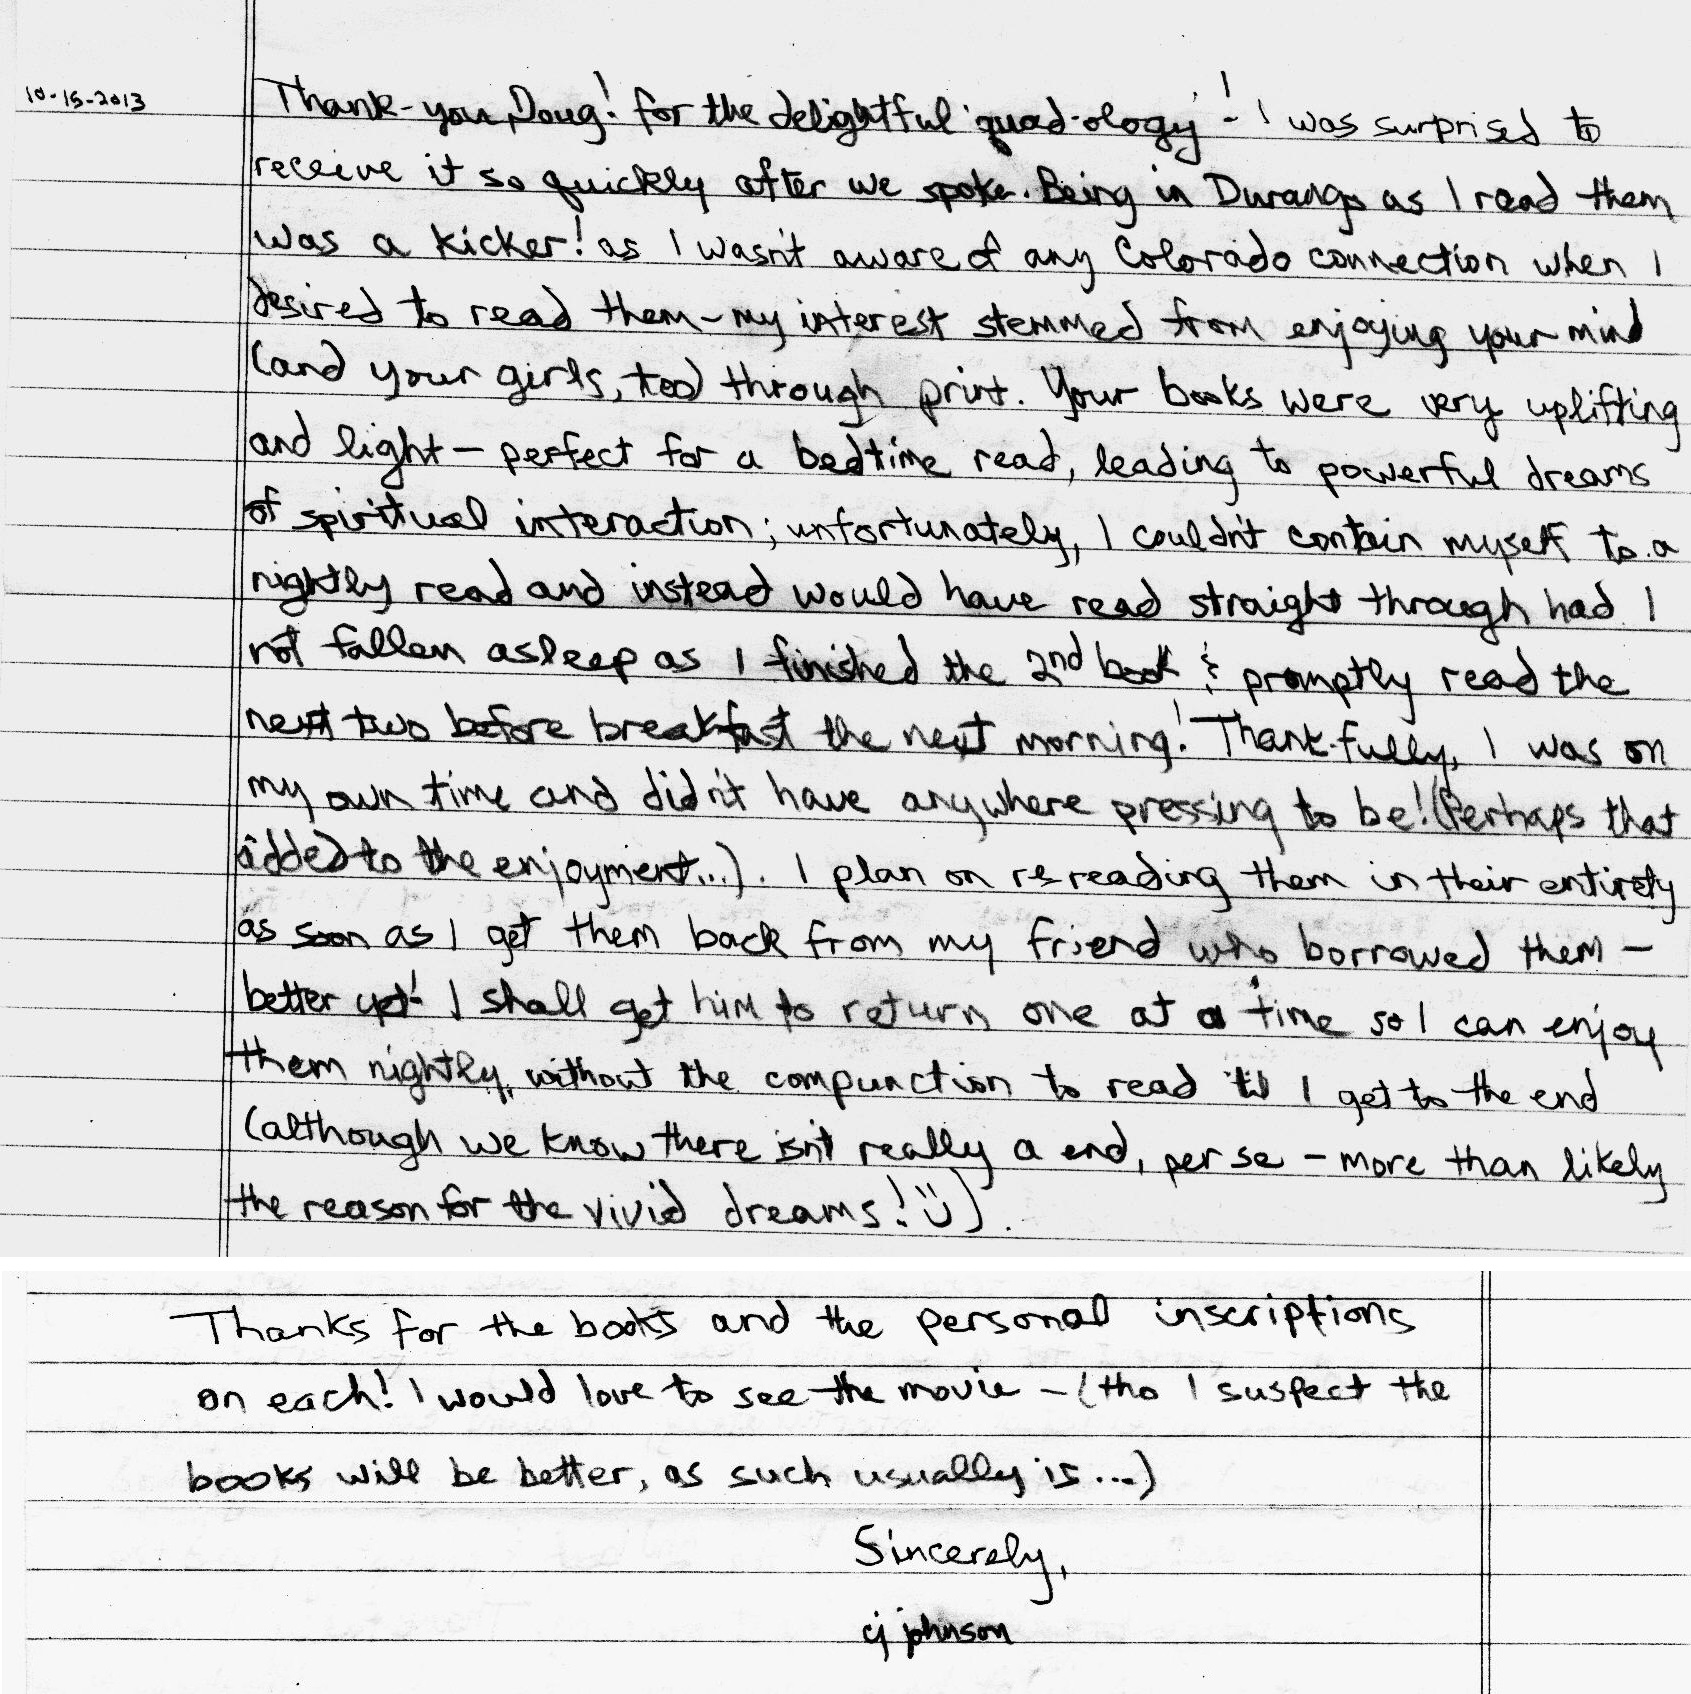 10-15-2013
Thank-you, Doug! for the delightful 'quad-ology'! I was surprised to
receive it so quickly after we spoke. Being in Durango as I read them
was a kicker! as I wasn't aware of any Colorado connection when I
desired to read them - my interest stemmed from enjoying your mind
(and your girls, too) through print. Your books were very uplifting
and light - perfect for a bedtime read, leading to powerful dreams
of spiritual interaction; unfortunately, I couldn't contain myself to a
nightly read and instead would have read straight through had I
not fallen asleep as I finished the 2nd book & promptly read the
next two before breakfast the next morning! Thank-fully, I was on
my own time and didn't have anywhere pressing to be! (Perhaps that
added to the enjoyment...). I plan on re-reading them in their entirety
as soon as I get them back from my friend who borrowed them -
better yet! I shall get him to return one at a time so I can enjoy
them nightly, without the compunction to read 'til I get to the end
(although we know there isn't really a end, per se - more than likely
the reason for the vivid dreams! :)).
Thanks for the books and the personal inscriptions
on each! I would love to see the movie - (tho I suspect the
books will be better, as such usually is...)
Sincerely,
cj johnson